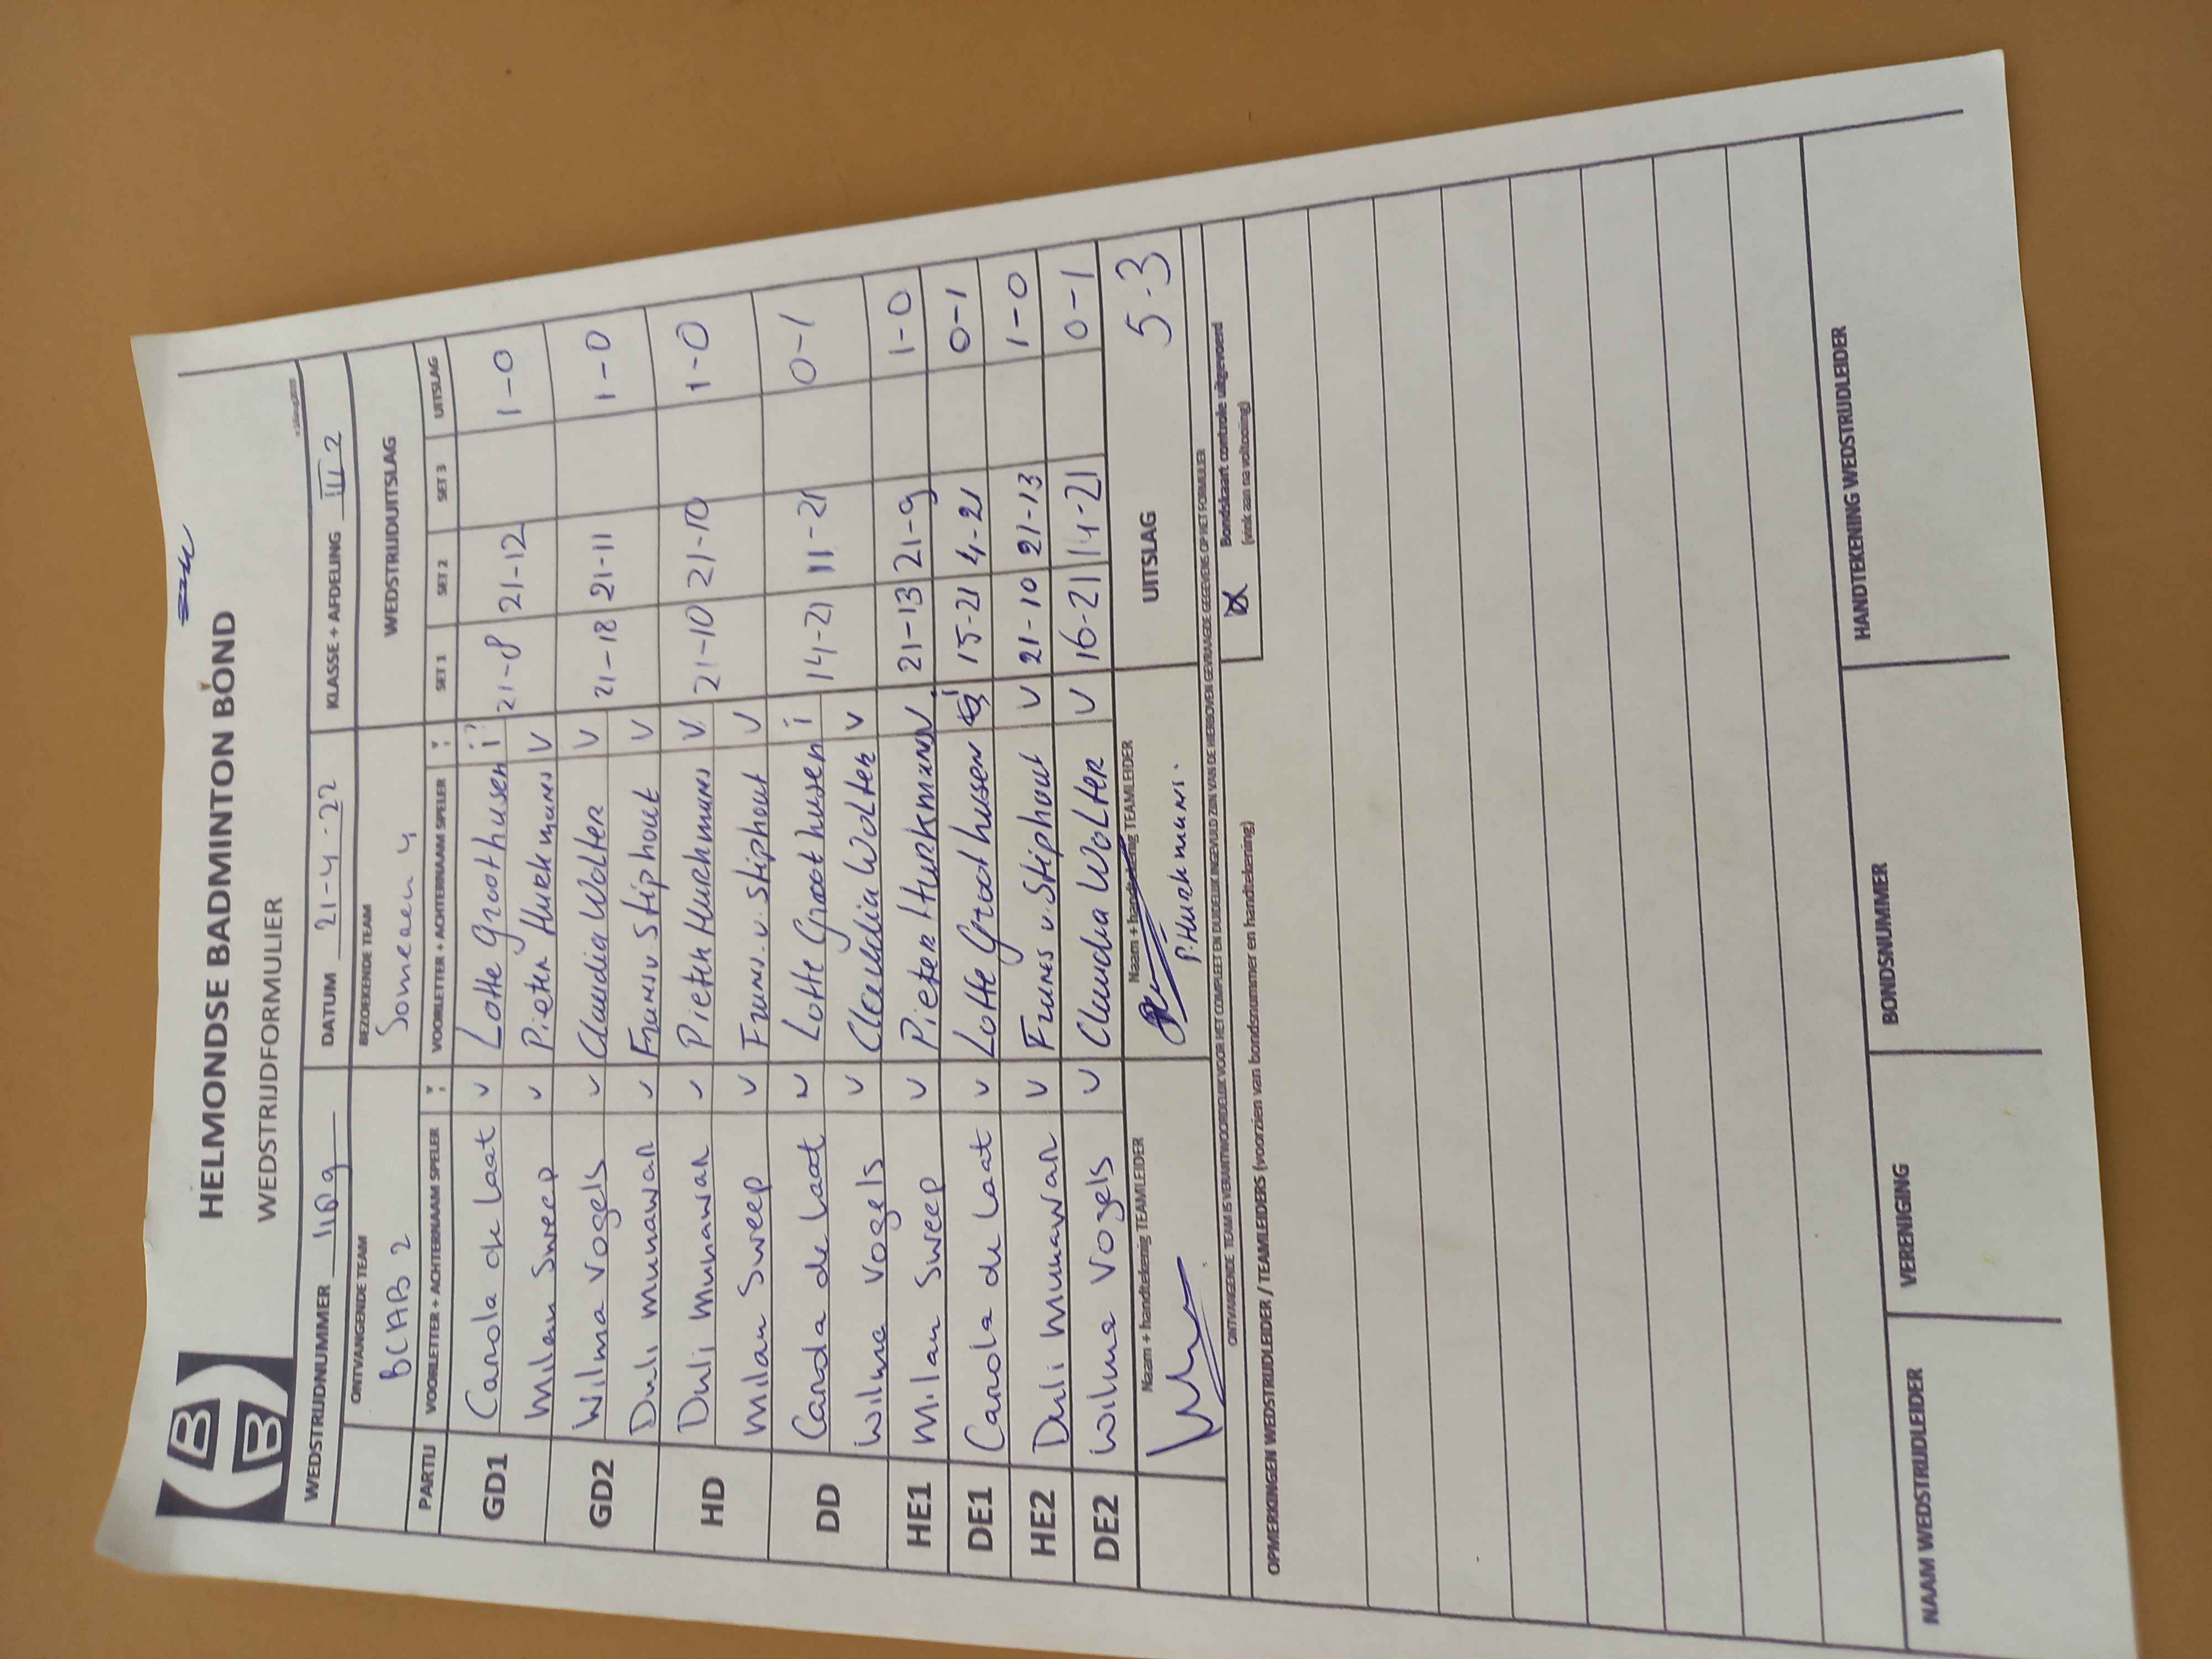 HELMONDSE BADMINTON BOND
WEDSTRIJDFORMULIER
WEDSTRIJDNUMMER DATUM 21-4-22 KLASSE + AFDELING III 2
ONTVANGENDE TEAM BEZOEKENDE TEAM WEDSTRIJDUITSLAG
BCAB 2 Someren 4
PARTIJ VOORLETTER + ACHTERNAAM SPELER VOORLETTER + ACHTERNAAM SPELER SET 1 SET 2 SET 3 UITSLAG
GD1 Carola de Laat v Lotte Groothusen i? 21-8 21-12 1-0
Milan Sweep v Pieter Hurkmans v
GD2 Wilma Vogels v Claudia Wolter v 21-18 21-11 1-0
Duli Munawar v Frans v Stiphout v
HD Duli Munawar v Pieter Hurkmans v 21-10 21-10 1-0
Milan Sweep v Frans v. Stiphout v
DD Carola de Laat v Lotte Groothusen i 14-21 11-21 0-1
Wilma Vogels v Claudia Wolter v
HE1 Milan Sweep v Pieter Hurkmans v 21-13 21-9 1-0
DE1 Carola de Laat v Lotte Groothusen 15-21 4-21 0-1
HE2 Duli Munawar v Frans v. Stiphout v 21-10 21-13 1-0
DE2 Wilma Vogels v Claudia Wolter v 16-21 14-21 0-1
Naam + handtekenig TEAMLEIDER Naam + handtekenig TEAMLEIDER UITSLAG 5-3
P. Hurkmans.
ONTVANGENDE TEAM IS VERANTWOORDELIJK VOOR HET COMPLEET EN DUIDELIJK INGEVULD ZIJN VAN DE HIERBOVEN GEVRAAGDE GEGEVENS OP HET FORMULIER
Bondskaart controle uitgevoerd
(vink aan na voltooiing)
OPMERKINGEN WEDSTRIJDLEIDER / TEAMLEIDERS (voorzien van bondsnummer en handtekening)
NAAM WEDSTRIJDLEIDER VERENIGING BONDSNUMMER HANDTEKENING WEDSTRIJDLEIDER